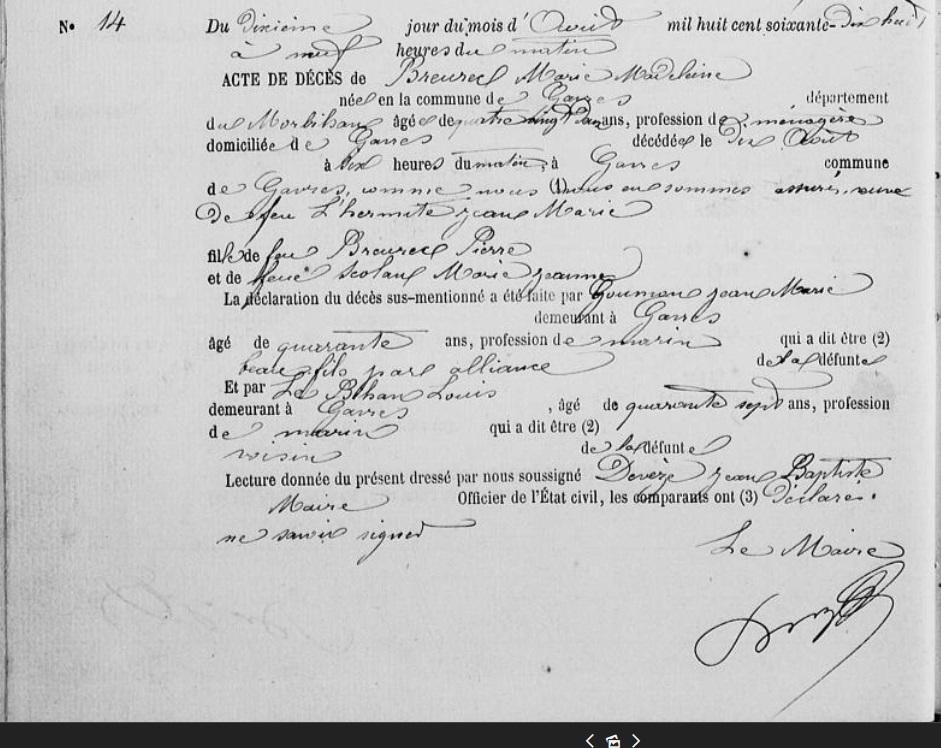 N° 14 Du Dixième jour du mois d'Août mil huit cent soixante-Dix huit
à neuf heures du matin
ACTE DE DÉCÈS de Breurec Marie Madeleine
née en la commune de Gavres département
du Morbihan âgée de quatre vingt ans, profession de ménagère
domiciliée de Gavres décédée le Dix Août
à Six heures du matin, à Gavres commune
de Gavres, comme nous (1) nous en sommes assuré, veuve
De feu L'hermite jean Marie
fille de feu Breurec Pierre
et de feue Scolan Marie jeanne
La déclaration du décès sus-mentionné a été faite par Goumon jean Marie
demeurant à Gavres
âgé de quarante ans, profession de marin qui a dit être (2)
beau fils par alliance de la défunte
Et par Le Bihan Louis
demeurant à Gavres, âgé de quarante sept ans, profession
de marin qui a dit être (2)
voisin de la défunte
Lecture donnée du présent dressé par nous soussigné Devèze jean Baptiste
Maire Officier de l'État civil, les comparants ont (3) déclaré.
ne savoir signer
Le Maire